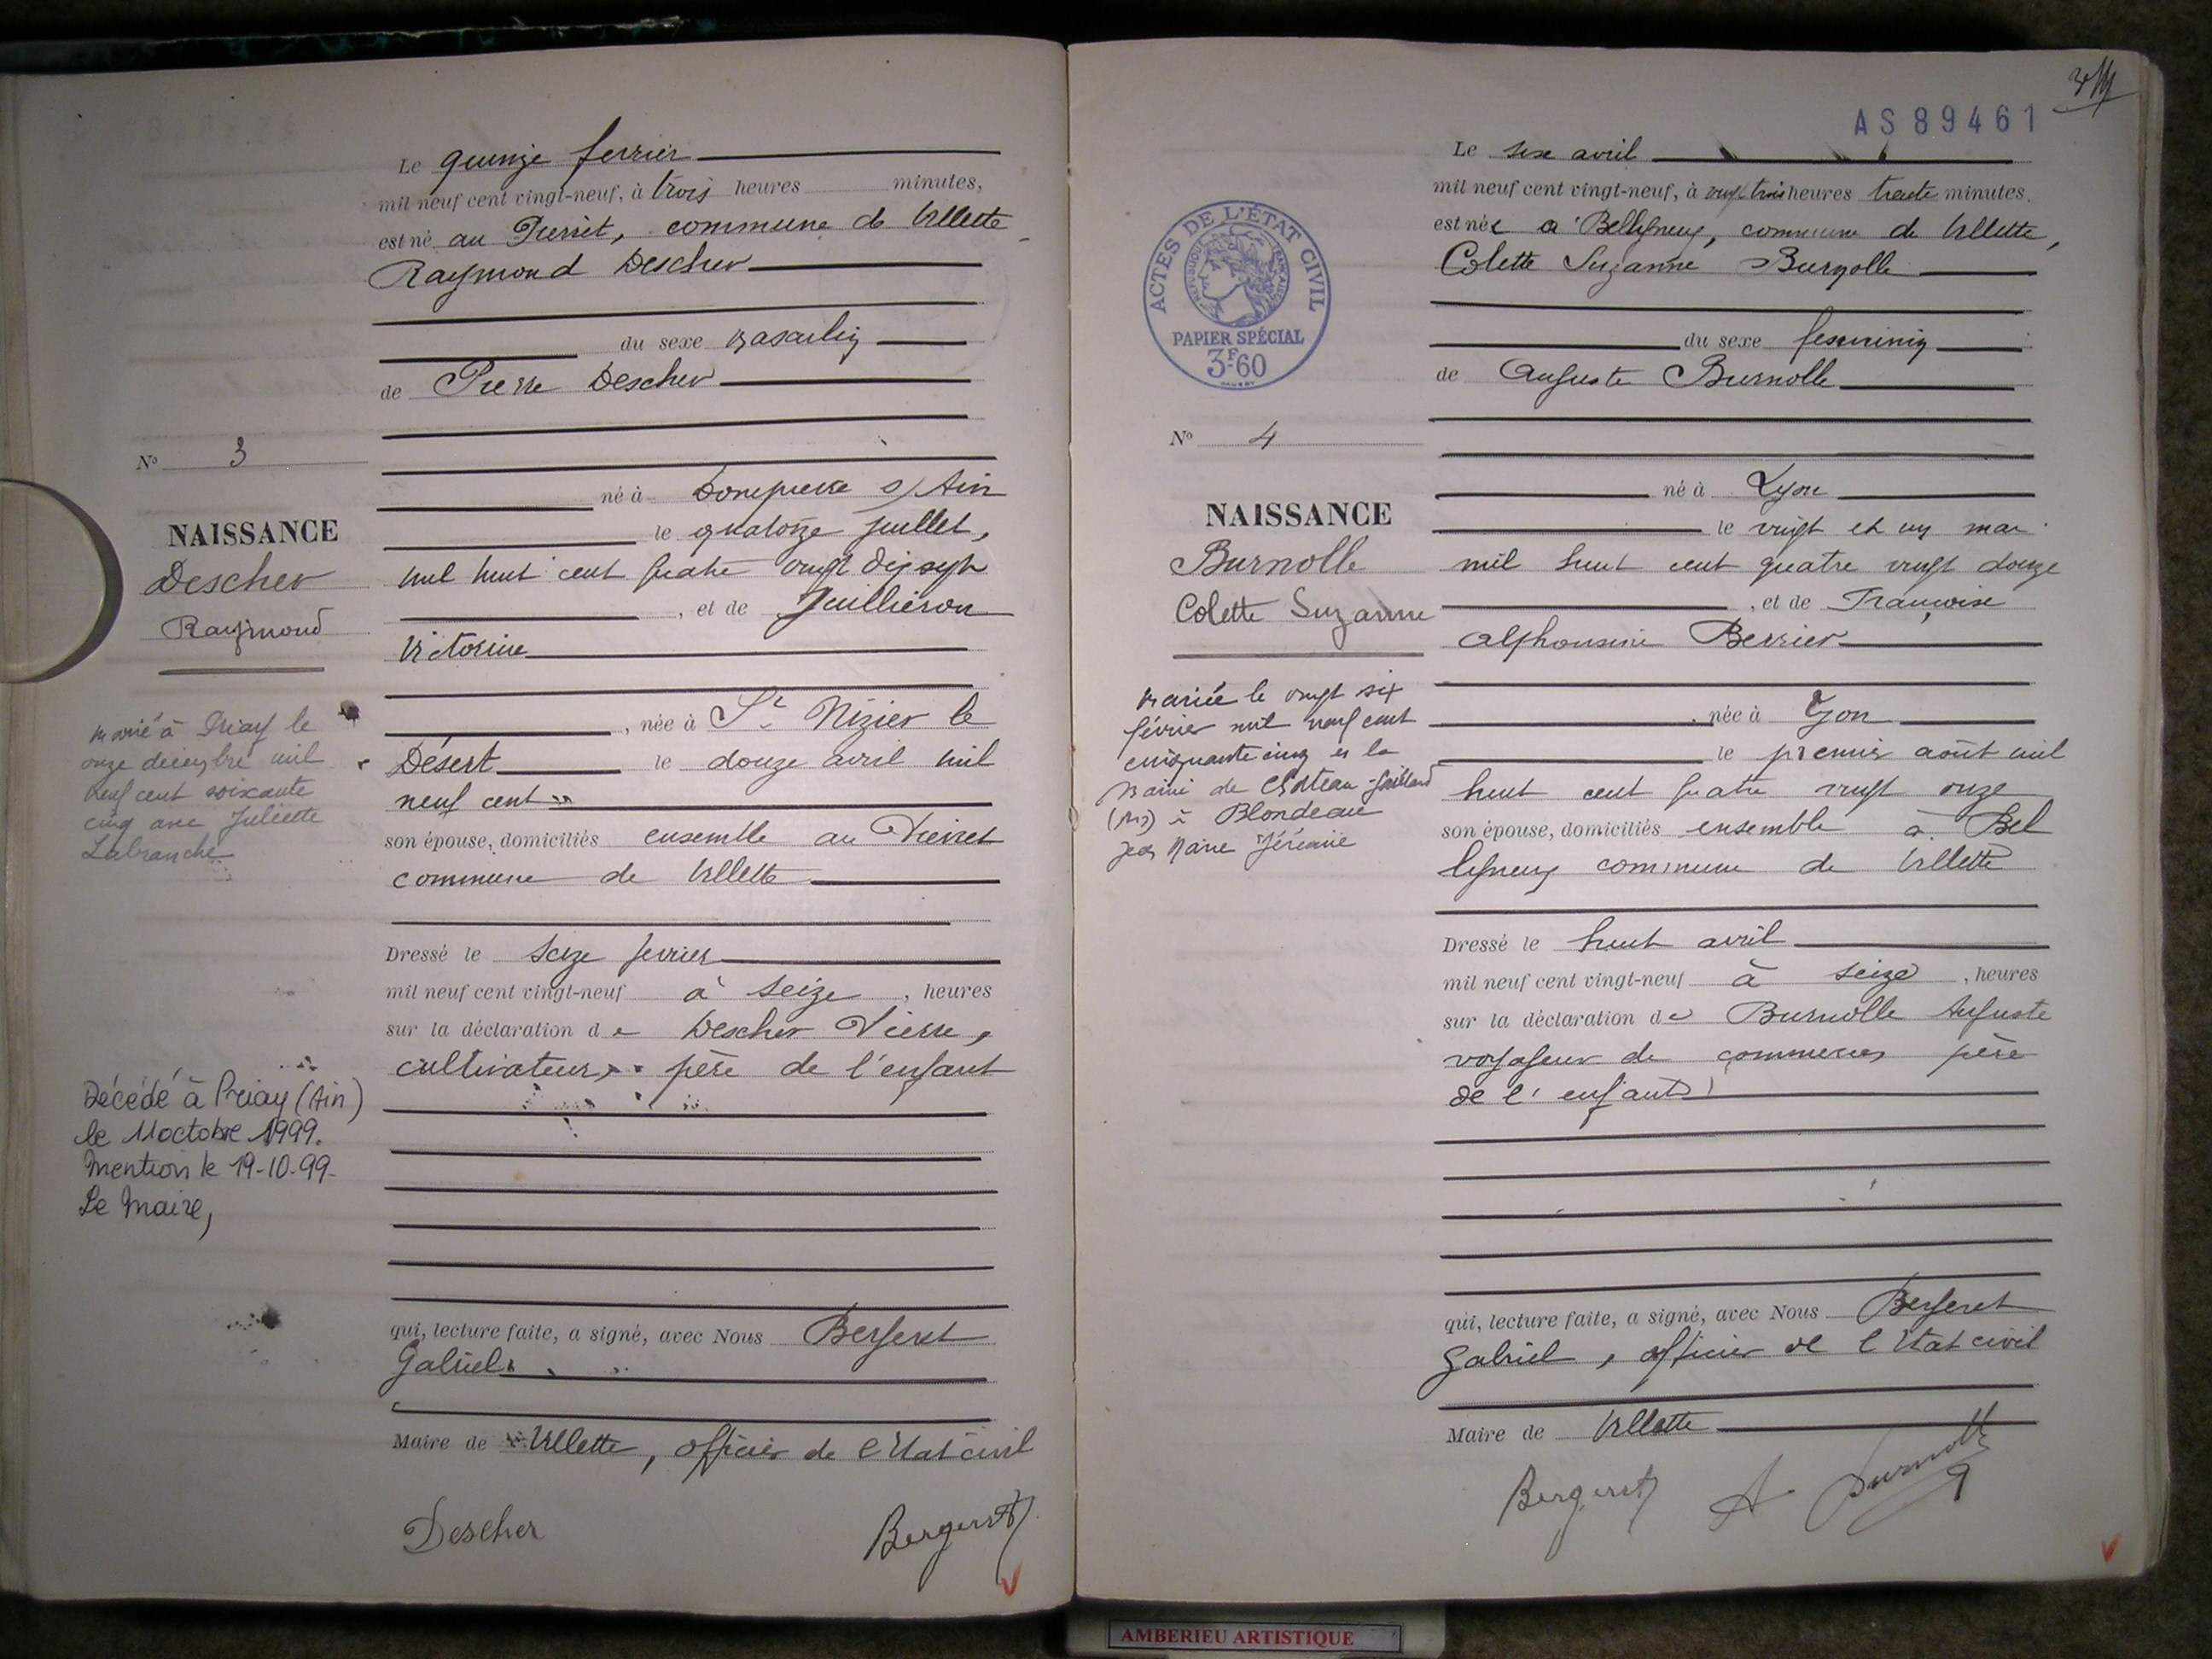 Le quinze fevrier
mil neuf cent vingt-neuf, à trois heures minutes,
est né au Pierret, commune de Villette
Raymond Descher
du sexe masculin
de Pierre Descher
né à Dompierre s/ Ain
le quatorze juillet,
mil huit cent quatre vingt dix sept
, et de Juilliéron
Victorine
, née à St Nizier le
Désert le douze avril mil
neuf cent
son épouse, domiciliés ensemble au Pierret
commune de Villette
Dressé le seize fevrier
mil neuf cent vingt-neuf à seize , heures
sur la déclaration de Descher Pierre,
cultivateur, père de l'enfant
qui, lecture faite, a signé, avec Nous Bergeret
Gabriel
Maire de Villette, officier de l'Etat civil
Descher Bergeret
No 3
NAISSANCE
Descher
Raymond
Marié à Priay le
onze décembre mil
neuf cent soixante
cinq avec Juliette
Labranche
Décédé à Priay (Ain)
le 11 octobre 1999.
Mention le 19-10-99.
Le Maire,
AS89461
Le six avril
mil neuf cent vingt-neuf, à vingt trois heures trente minutes.
est née à Belligneux, commune de Villette,
Colette Suzanne Burnolle
du sexe feminin
de Auguste Burnolle
né à Lyon
le vingt et un mai
mil huit cent quatre vingt douze
, et de Françoise
Alphonsine Berrier
, née à Lyon
le premier août mil
huit cent quatre vingt onze
son épouse, domiciliés ensemble à Bel
ligneux commune de Villette
Dressé le huit avril
mil neuf cent vingt-neuf à seize , heures
sur la déclaration de Burnolle Auguste
voyageur de commerce père
de l'enfant
qui, lecture faite, a signé, avec Nous Bergeret
Gabriel, officier de l'Etat civil
Maire de Villette
Bergeret A Burnolle
ACTES DE L'ÉTAT CIVIL
RÉPUBLIQUE FRANÇAISE
PAPIER SPÉCIAL
3F.60
No 4
NAISSANCE
Burnolle
Colette Suzanne
Mariée le vingt six
février mil neuf cent
cinquante cinq en la
Mairie de Château-Gaillard
(Ain) à Blondeau
Jean Marie
AMBERIEU ARTISTIQUE